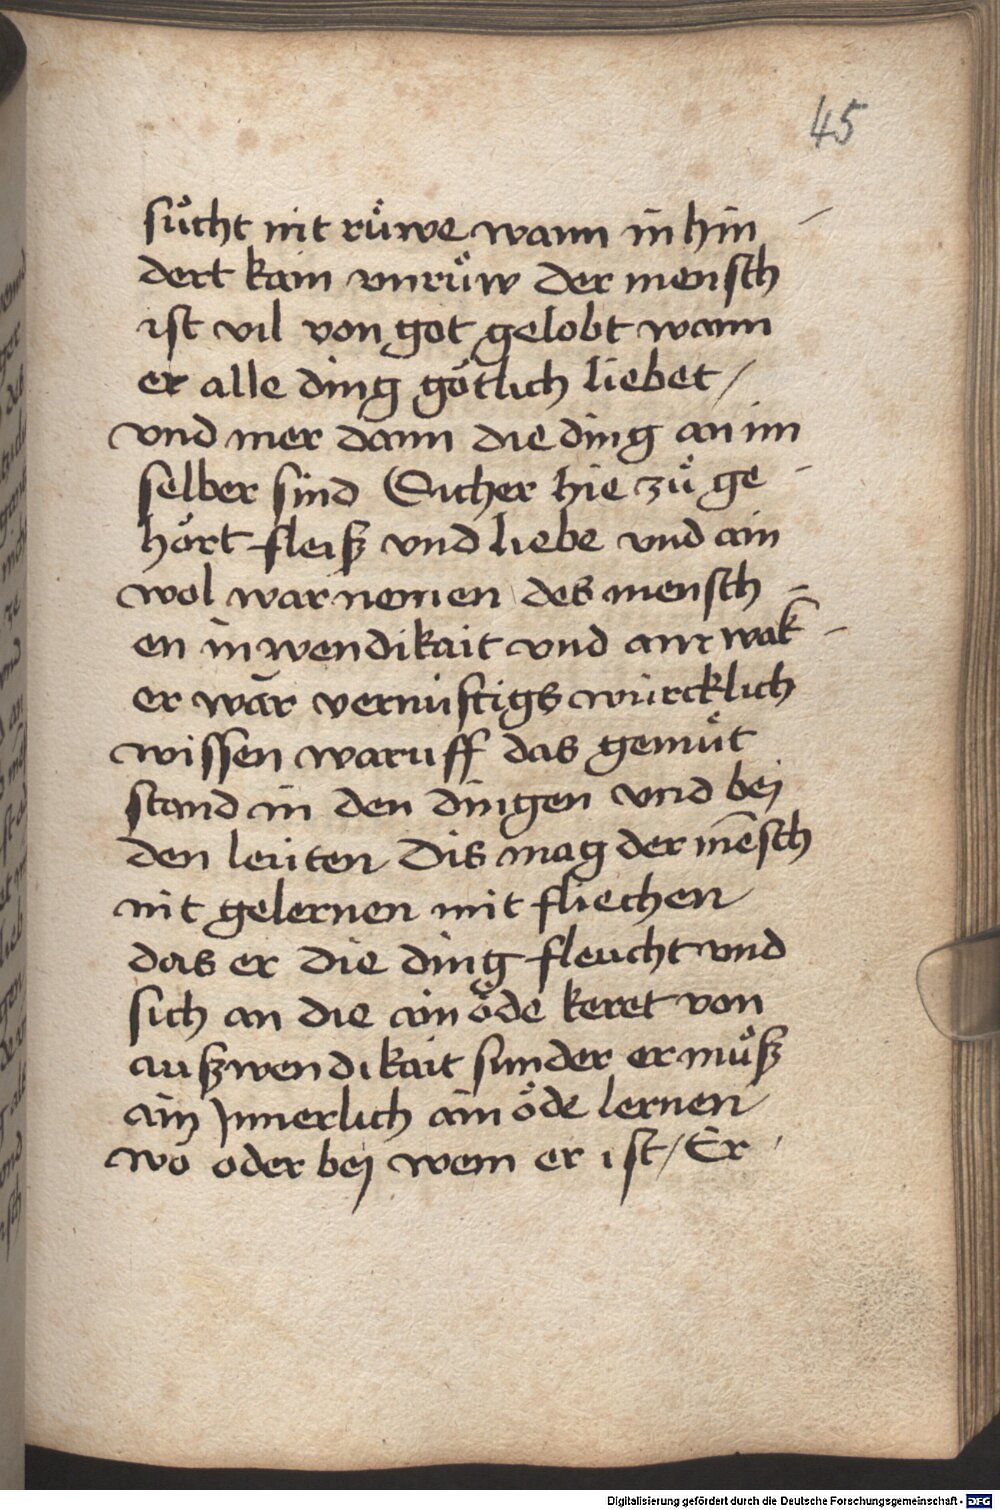 45
sůcht nit růwe wann in hin
dert kain vnrůw der mensch
ist vil von got gelobt wann
er alle ding götlich liebet /
vnd mer dann die ding an im
selber sind Sicher hie zů ge
hört fleiß vnd liebe vnd ain
wol warnemen des mensch =
en inwendikait vnd ain wak -
er wār vernüftigs würcklich
wissen waruff das gemůt
stand in den dingen vnd bej
den leüten Dis mag der mēsch
nit gelernen mit fliechen
das er die ding fleücht vnd
sich an die ainöde keret von
außwendikait sunder er můß
ain Jnnerlich ainöde lernen
wo oder bej wem er ist / Er
Digitalisierung gefördert durch die Deutsche Forschungsgemeinschaft - DFG